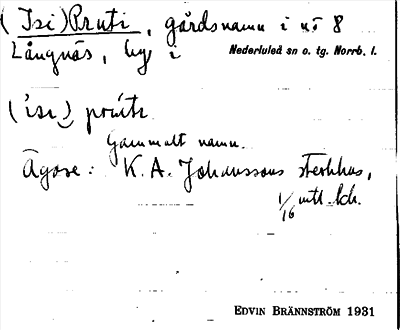 (Isi)Pruti, gårdsnamn i nr 8
Långnäs, by i Nederluleå sn o. tg. Norrb. l.
Gammalt namn.
Ägare: K. A. Johanssons sterbhus,
1/16 mtl.
EDVIN BRÄNNSTRÖM 1931